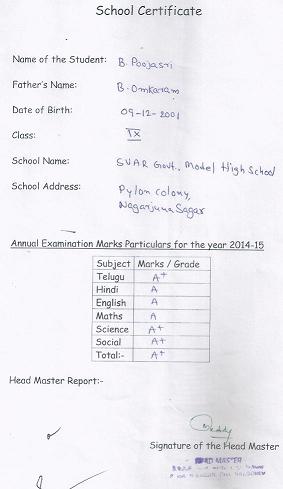 School Certificate
Name of the Student: B. Poojasri
Father's Name: B. Omkaram
Date of Birth: 09-12-2001
Class: IX
School Name: SVAR Govt., Model High School
School Address: Pylon Colony,
Nagarjuna Sagar
Annual Examination Marks Particulars for the year 2014-15
Subject Marks / Grade
Telugu A+
Hindi A
English A
Maths A
Science A+
Social A+
Total:- A+
Head Master Report:-
Reddy
Signature of the Head Master
HEAD MASTER